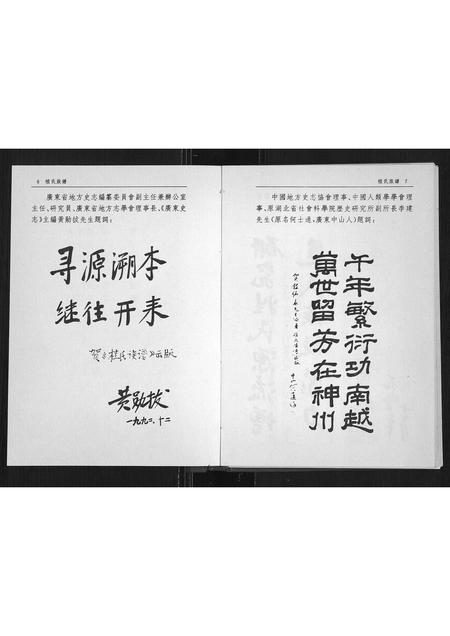 6 植氏族譜
廣東省地方史志編纂委員會副主任兼辦公室
主任、研究員、廣東省地方志學會理事長、《廣東史
志》主編黃勛拔先生題詞：
寻源溯本
继往开来
贺《植氏族谱》出版
黄勋拔
一九九二.十二
植氏族譜 7
中國地方史志協會理事、中國人類學學會理
事、原湖北省社會科學院歷史研究所副所長李建
先生（原名何士通，廣東中山人）題詞：
千年繁衍功南越
萬世留芳在神州